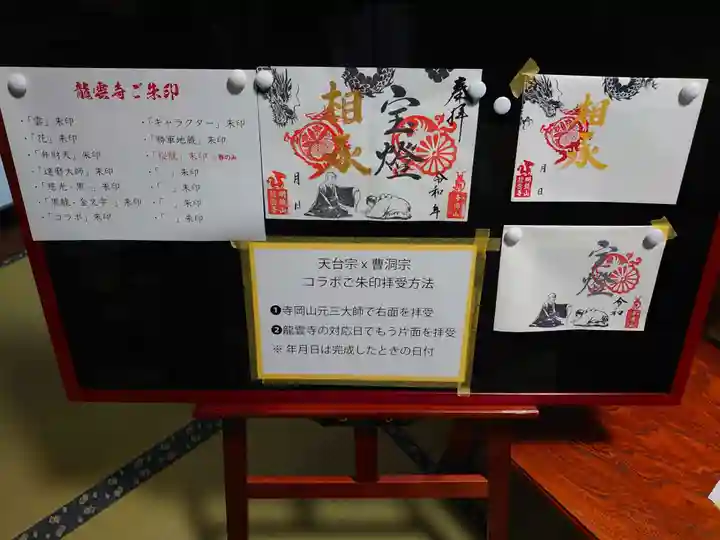 龍雲寺ご朱印
・「雲」朱印
・「花」朱印
・「弁財天」朱印
・「達磨大師」朱印
・「慈光・黒」朱印
・「黒龍・金文字」朱印
・「コラボ」朱印
・「キャラクター」朱印
・「勝軍地蔵」朱印
・「桜龍」朱印 春のみ
・「　」朱印
・「　」朱印
・「　」朱印
・「　」朱印
奉拝
宝燈
令和 年
相承
月 日
相承
月 日
宝燈
令和
天台宗 x 曹洞宗
コラボご朱印拝受方法
❶寺岡山元三大師で右面を拝受
❷龍雲寺の対応日でもう片面を拝受
※ 年月日は完成したときの日付